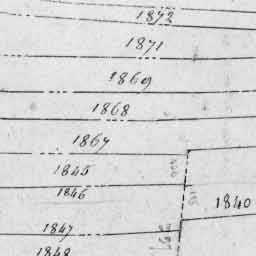 1872
1871
1869
1868
1867
1845
1846
1840
1847
1848